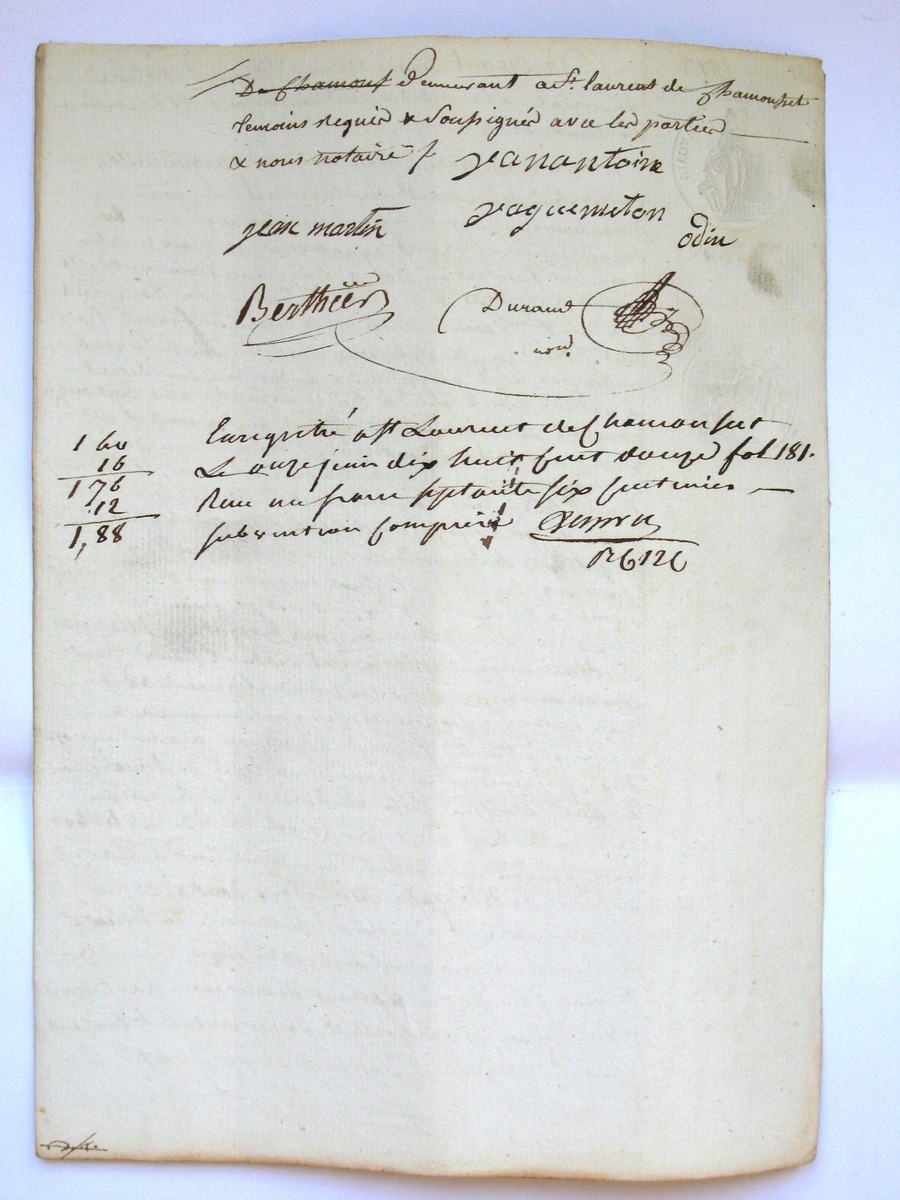 De Chamous demeurant a St. laurent de Chamousset
temoins requis & Soussignés avec les parties
& nous notaire
jean antoine
jaquemeton
jean martin
odin
Berthier
Durand
not.
1 60
16
1 76
.12
1,88
Enregistré a St Laurent de Chamousset
Le onze juin dix huit cent douze fol 181.
Reçu un franc septante six centimes
subvention comprise